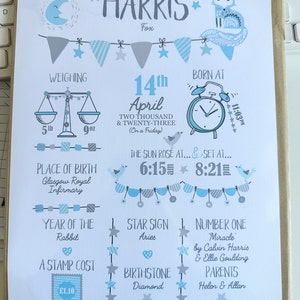 HARRIS
Fox
WEIGHING
5lb 9oz
14th
April
TWO THOUSAND
& TWENTY-THREE
(On a Friday)
BORN AT
PLACE OF BIRTH
Glasgow Royal
Infirmary
THE SUN ROSE AT... & SET AT...
6:15am 8:21pm
YEAR OF THE
Rabbit
STAR SIGN
Aries
NUMBER ONE
Miracle
by Calvin Harris
& Ellie Goulding
A STAMP COST
£1.10
BIRTHSTONE
Diamond
PARENTS
Helen & Allan